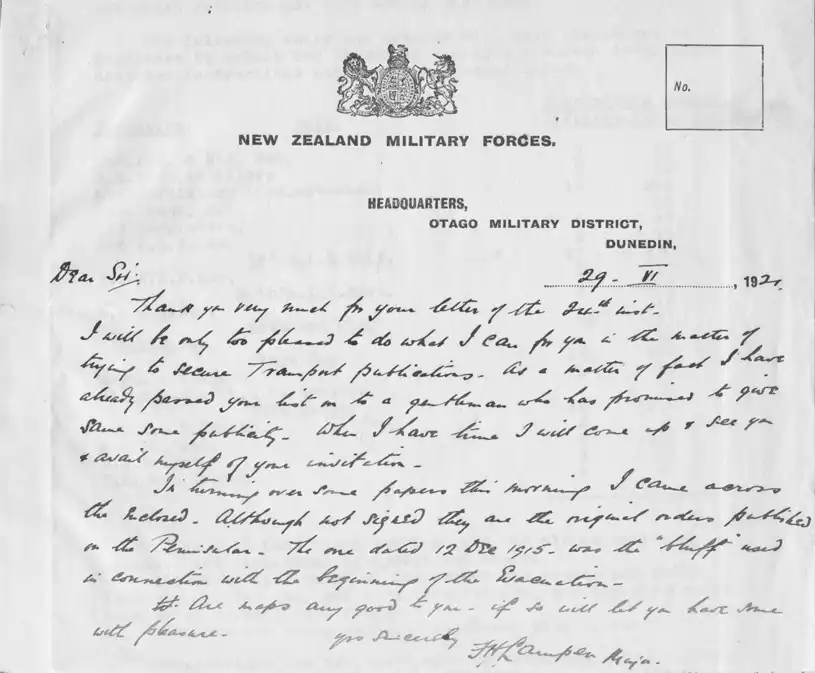 No.
NEW ZEALAND MILITARY FORCES.
HEADQUARTERS,
OTAGO MILITARY DISTRICT,
DUNEDIN,
29 - VI , 192
Dear Sir.
Thank you very much for your letter of the 24th inst.
I will be only too pleased to do what I can for you in the matter of
trying to secure Transport publications. As a matter of fact I have
already passed your list on to a gentleman who has promised to give
same some publicity. When I have time I will come up & see you
& avail myself of your invitation -
In turning over some papers this morning I came across
the enclosed. Although not signed they are the original orders published
on the Peninsular. The one dated 12 Dec 1915 - was the "bluff" used
in connection with the beginning of the Evacuation -
Are maps any good to you - if so will let you have some
with pleasure.
yrs sincerely
FH Lampen Major.